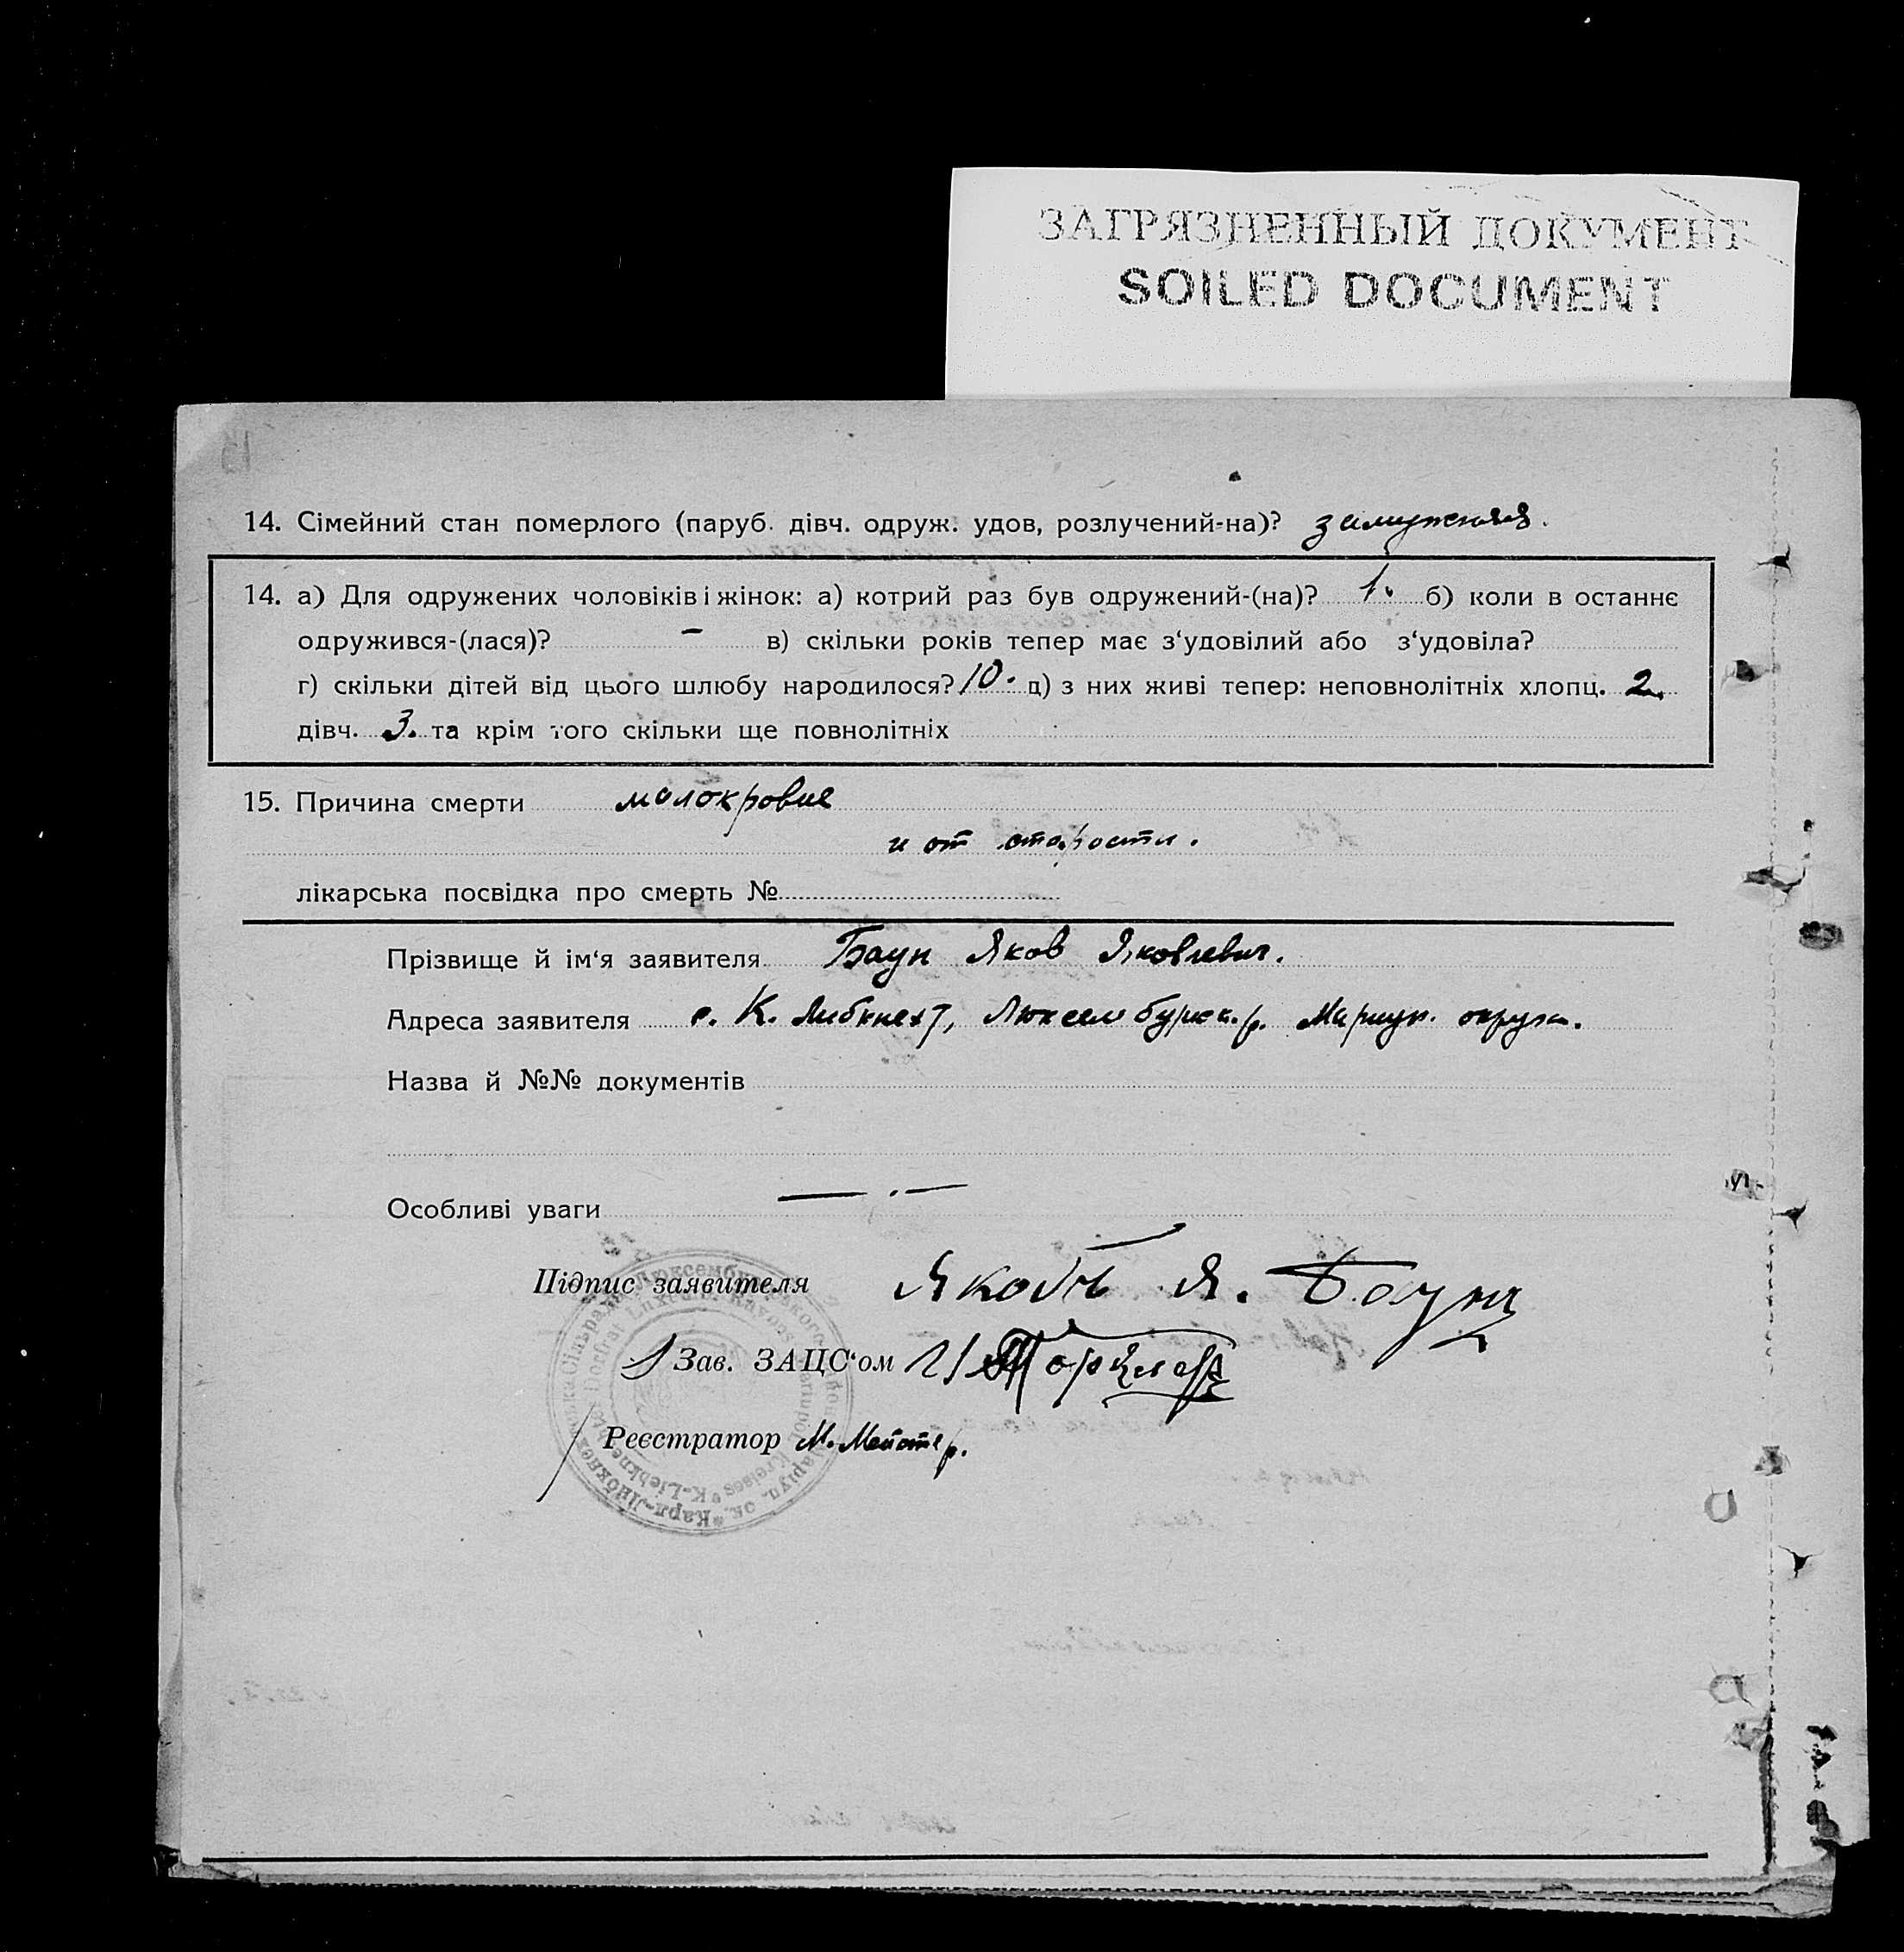 ЗАГРЯЗНЕННЫЙ ДОКУМЕНТ
SOILED DOCUMENT
14. Сімейний стан померлого (паруб. дівч. одруж. удов, розлучений-на)? замужняя.
14. а) Для одружених чоловіків і жінок: а) котрий раз був одружений-(на)? 1. б) коли в останнє
одружився-(лася)? – в) скільки років тепер має з‘удовілий або з‘удовіла?
г) скільки дітей від цього шлюбу народилося? 10. д) з них живі тепер: неповнолітніх хлопц. 2.
дівч. 3. та крім того скільки ще повнолітніх
15. Причина смерти малокровие
и от старости.
лікарська посвідка про смерть №
Прізвище й ім‘я заявителя Баун Яков Яковлевич.
Адреса заявителя с. К. Либкнехт, Люксембургск. р. Мариуп. округа.
Назва й №№ документів
Особливі уваги — . —
Підпис заявителя Якобъ Я. Баунъ
Зав. ЗАЦС‘ом
Реєстратор М. Мейстер.